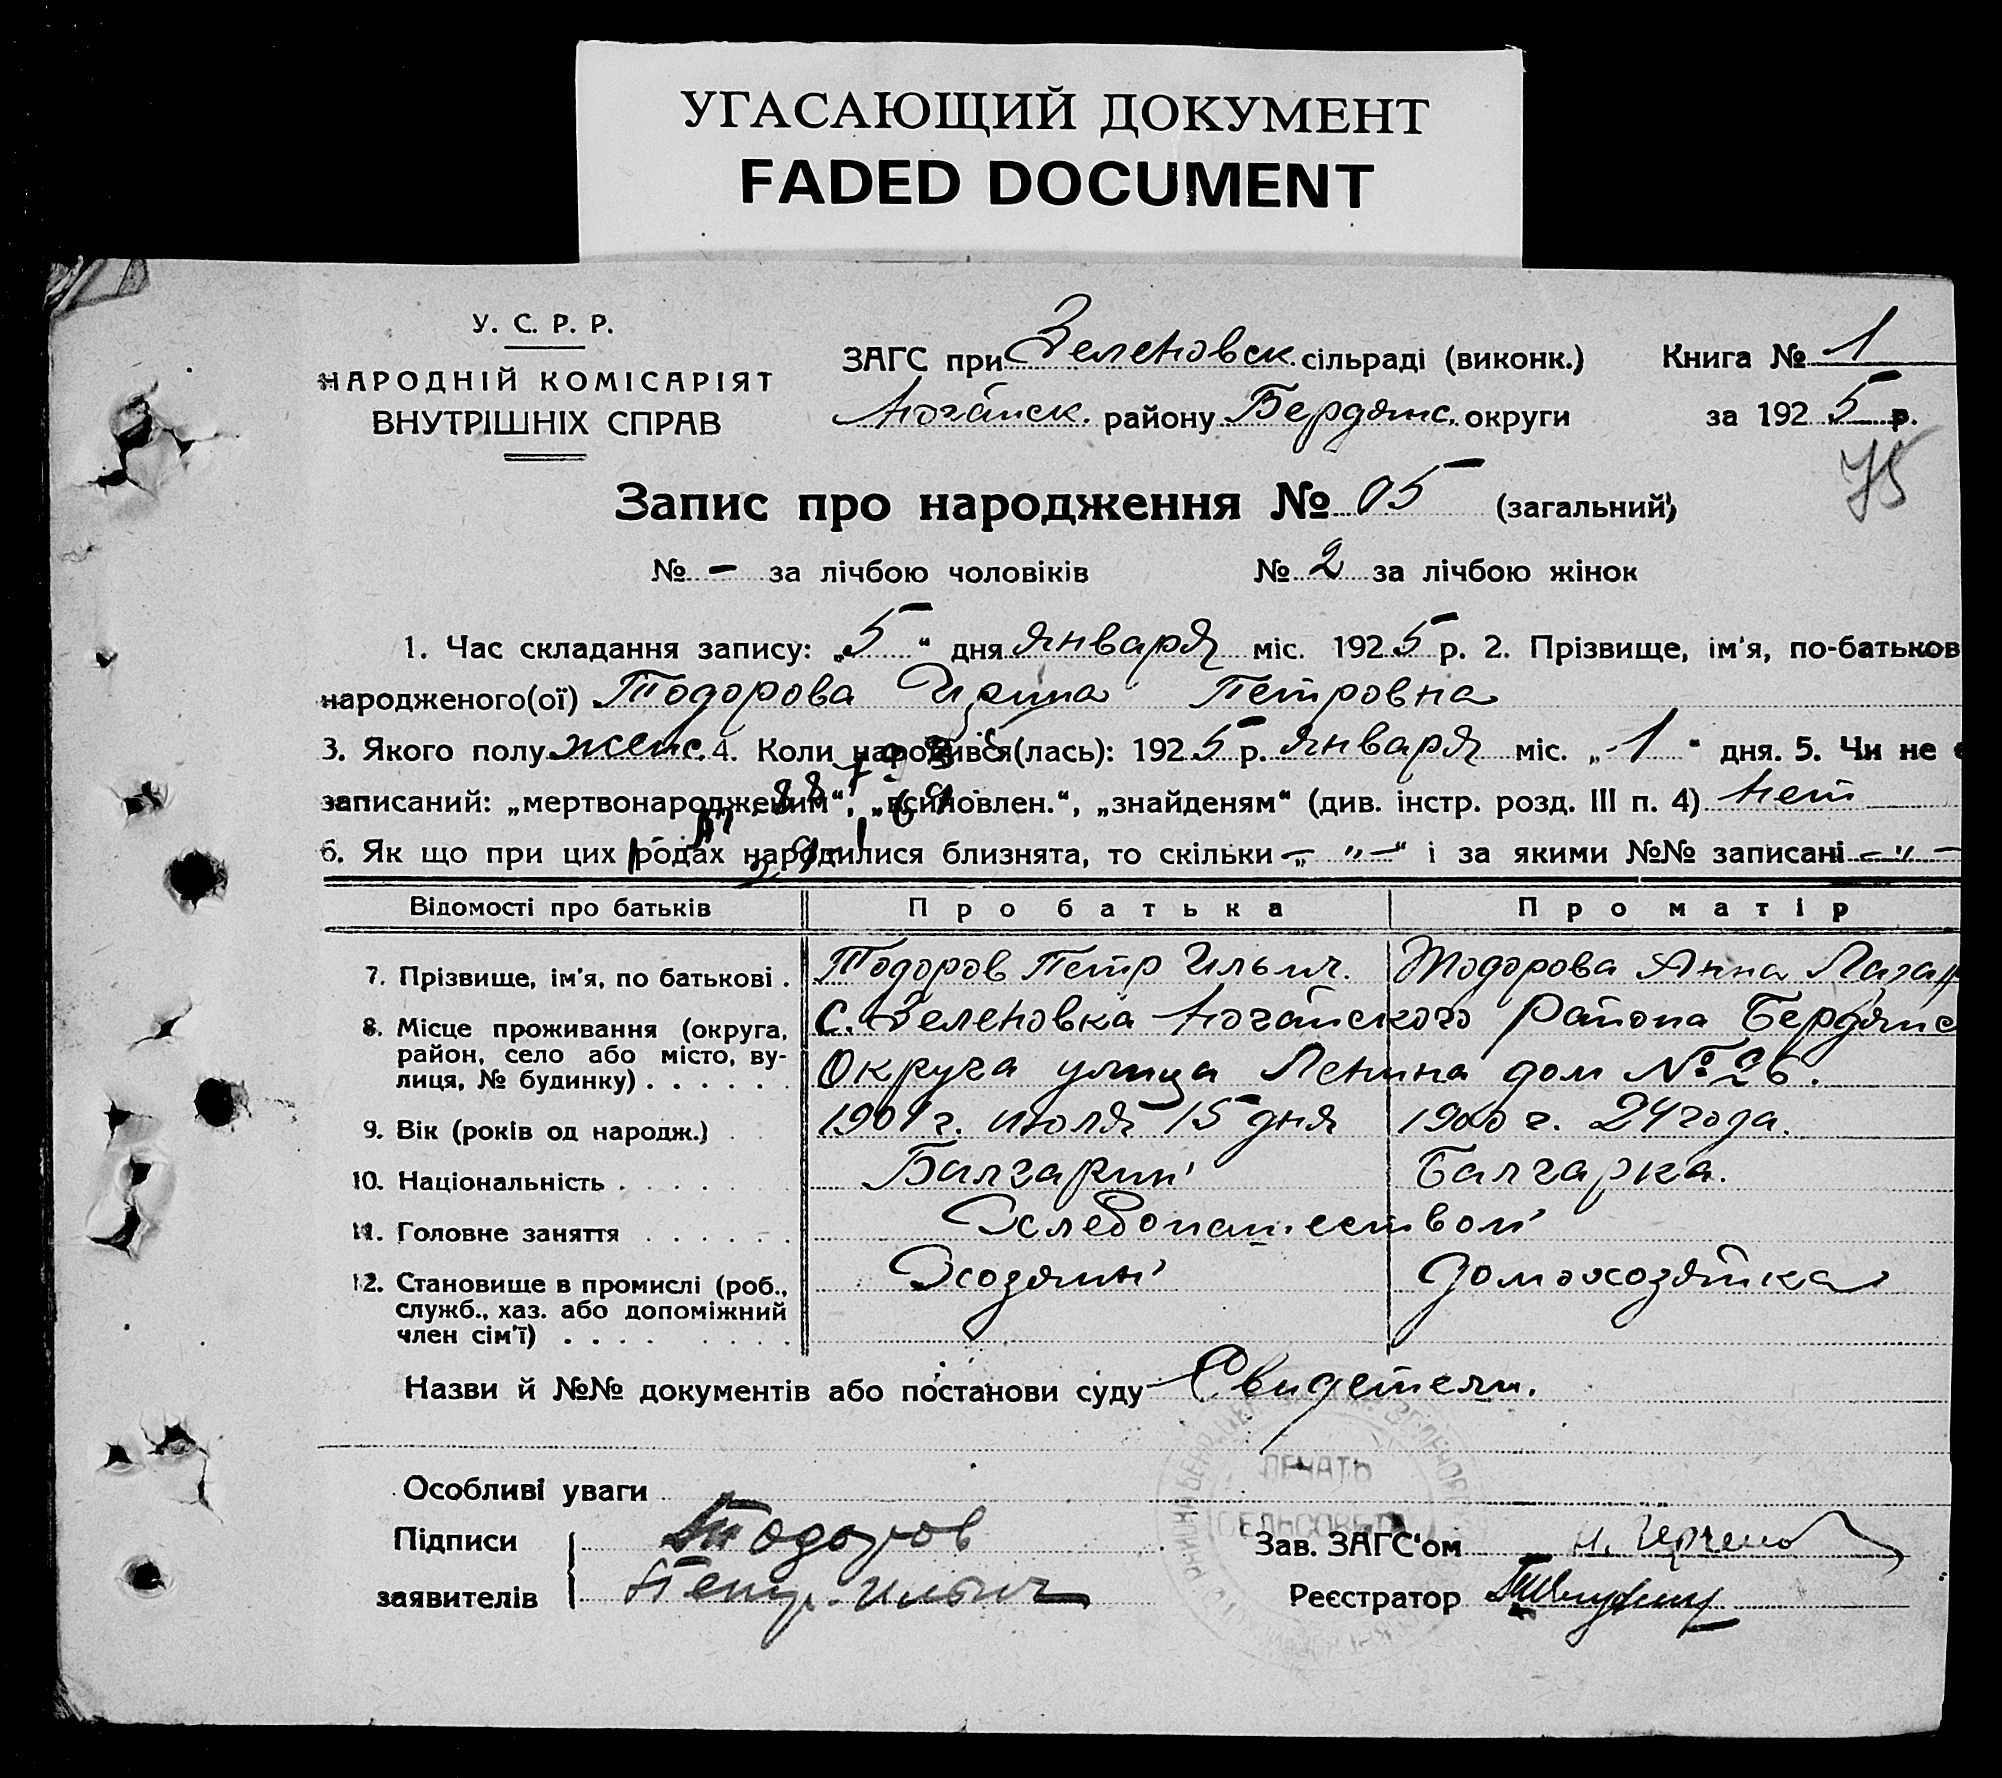 УГАСАЮЩИЙ ДОКУМЕНТ
FADED DOCUMENT
У. С. Р. Р.
НАРОДНІЙ КОМІСАРІЯТ
ВНУТРІШНІХ СПРАВ
ЗАГС при Зеленовск. сільраді (виконк.) Книга № 1
Ногайск. району Бердянс. округи за 1925 р.
75
Запис про народження № 05 (загальний)
№ – за лічбою чоловіків № 2 за лічбою жінок
1. Час складання запису: „5“ дня Января міс. 1925 р. 2. Прізвище, ім'я, по-батьков
народженого(ої) Тодорова Ирина Петровна
3. Якого полу женс. 4. Коли народився(лась): 1925 р. Января міс. „1“ дня. 5. Чи не є
записаний: „мертвонародженим“, „всиновлен.“, „знайденям“ (див. інстр. розд. III п. 4) Нет
6. Як що при цих родах народилися близнята, то скільки „–"–“ і за якими №№ записані –"–
Відомості про батьків Про батька Про матір
7. Прізвище, ім'я, по батькові . Тодоров Петр Ильич. Тодорова Анна Лазар
8. Місце проживання (округа, район, село або місто, вулиця, № будинку) . . . . . . с. Зеленовка Ногайского Района Бердянс
Округа улица Ленина дом № 26.
9. Вік (років од народж.) 1901 г. июля 15 дня 1900 г. 24 года.
10. Національність . . . . . Балгарин Балгарка.
11. Головне заняття . . . . . . Хлебопашеством
12. Становище в промислі (роб., служб., хаз. або допоміжний член сім'ї) . . . . Хозяин Домохозяйка
Назви й №№ документів або постанови суду Свидетели.
Особливі уваги
ПЕЧАТЬ
СЕЛЬСОВЕТА
Підписи Тодоров Зав. ЗАГС'ом
заявителів Петр. Ильич Реєстратор